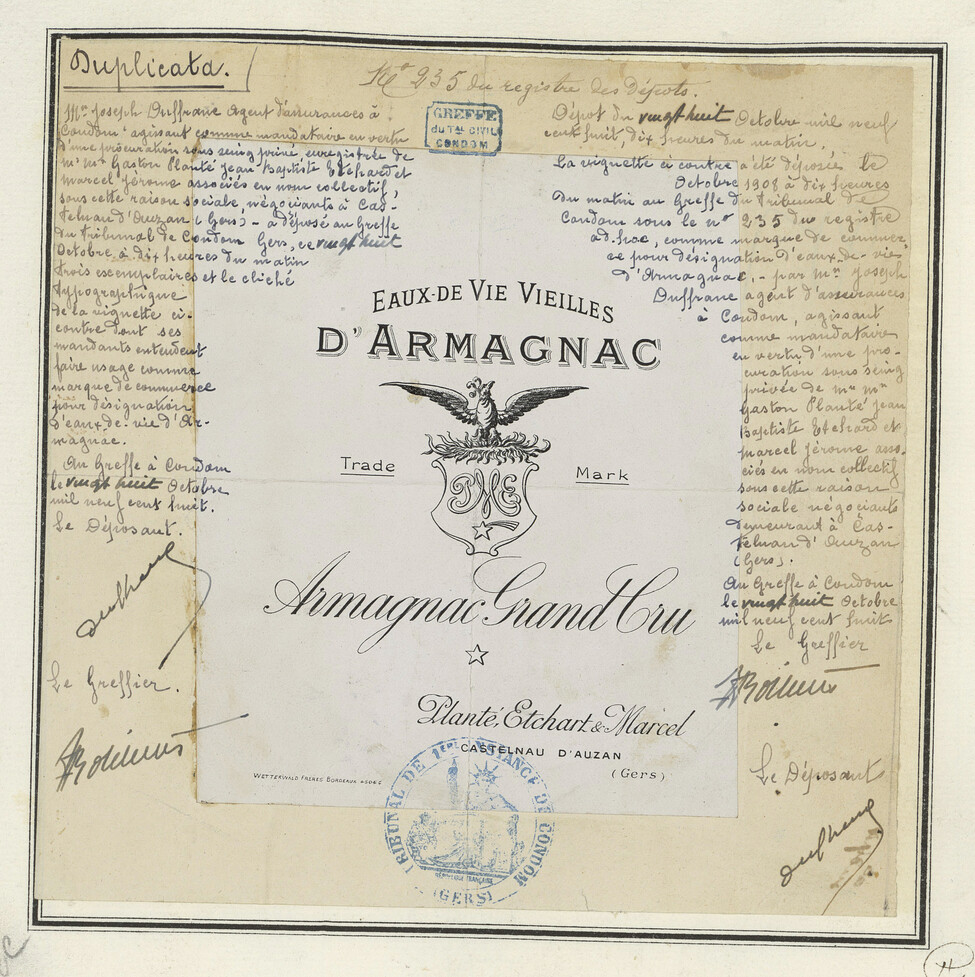 Duplicata.
No 235 du registre des Dépots.
GREFFE
du Tal CIVIL
CONDOM
Mr Joseph Duffranc Agent d'assurances à
Condom agissant comme mandataire en vertu
d'une procuration sous seing privé enregistrée de
Mr Mrs Gaston Planté Jean Baptiste Etchard et
Marcel Jérome associés en nom collectif,
sous cette raison sociale, négociants à Cas-
telnau d'Auzan (Gers) - a déposé au Greffe
du Tribunal de Condom Gers, ce vingt huit
Octobre à dix heures du matin
trois exemplaires et le cliché
typographique
de la vignette ci-
contre dont ses
mandants entendent
faire usage comme
marque de commerce
pour désignation
d'eaux. de. vie d'Ar-
magnac.
Au Greffe à Condom
le vingt huit Octobre
mil neuf cent huit.
Le Déposant.
Duffranc
Le Greffier.
Dépot du vingt huit Octobre mil neuf
cent huit, dix heures du matin.
La vignette ci contre a été déposée le
Octobre 1908 à dix heures
du matin au Greffe du Tribunal de
Condom sous le no 235 du registre
ad. hoc, comme marque de commer-
ce pour désignation d'eaux-de-vie
d'Armagnac, - par Mr Joseph
Duffranc agent d'assurances
à Condom, agissant
comme mandataire
en vertu d'une pro-
curation sous seing
privée de Mr Mrs
Gaston Planté Jean
Baptiste Etchard et
Marcel Jérome asso-
ciés en nom collectif
sous cette raison
sociale négociants
demeurant à Cas-
telnau d'Auzan
(Gers).
Au Greffe à Condom
le vingt huit Octobre
mil neuf cent huit
Le Greffier
Le Déposant
Duffranc
EAUX-DE VIE VIEILLES
D'ARMAGNAC
Trade Mark
PME
Armagnac Grand Cru
Planté, Etchart & Marcel
CASTELNAU D'AUZAN
(Gers)
WETTERWALD FRÈRES BORDEAUX
TRIBUNAL DE 1ERE INSTANCE DE CONDOM
RÉPUBLIQUE FRANÇAISE
(GERS)